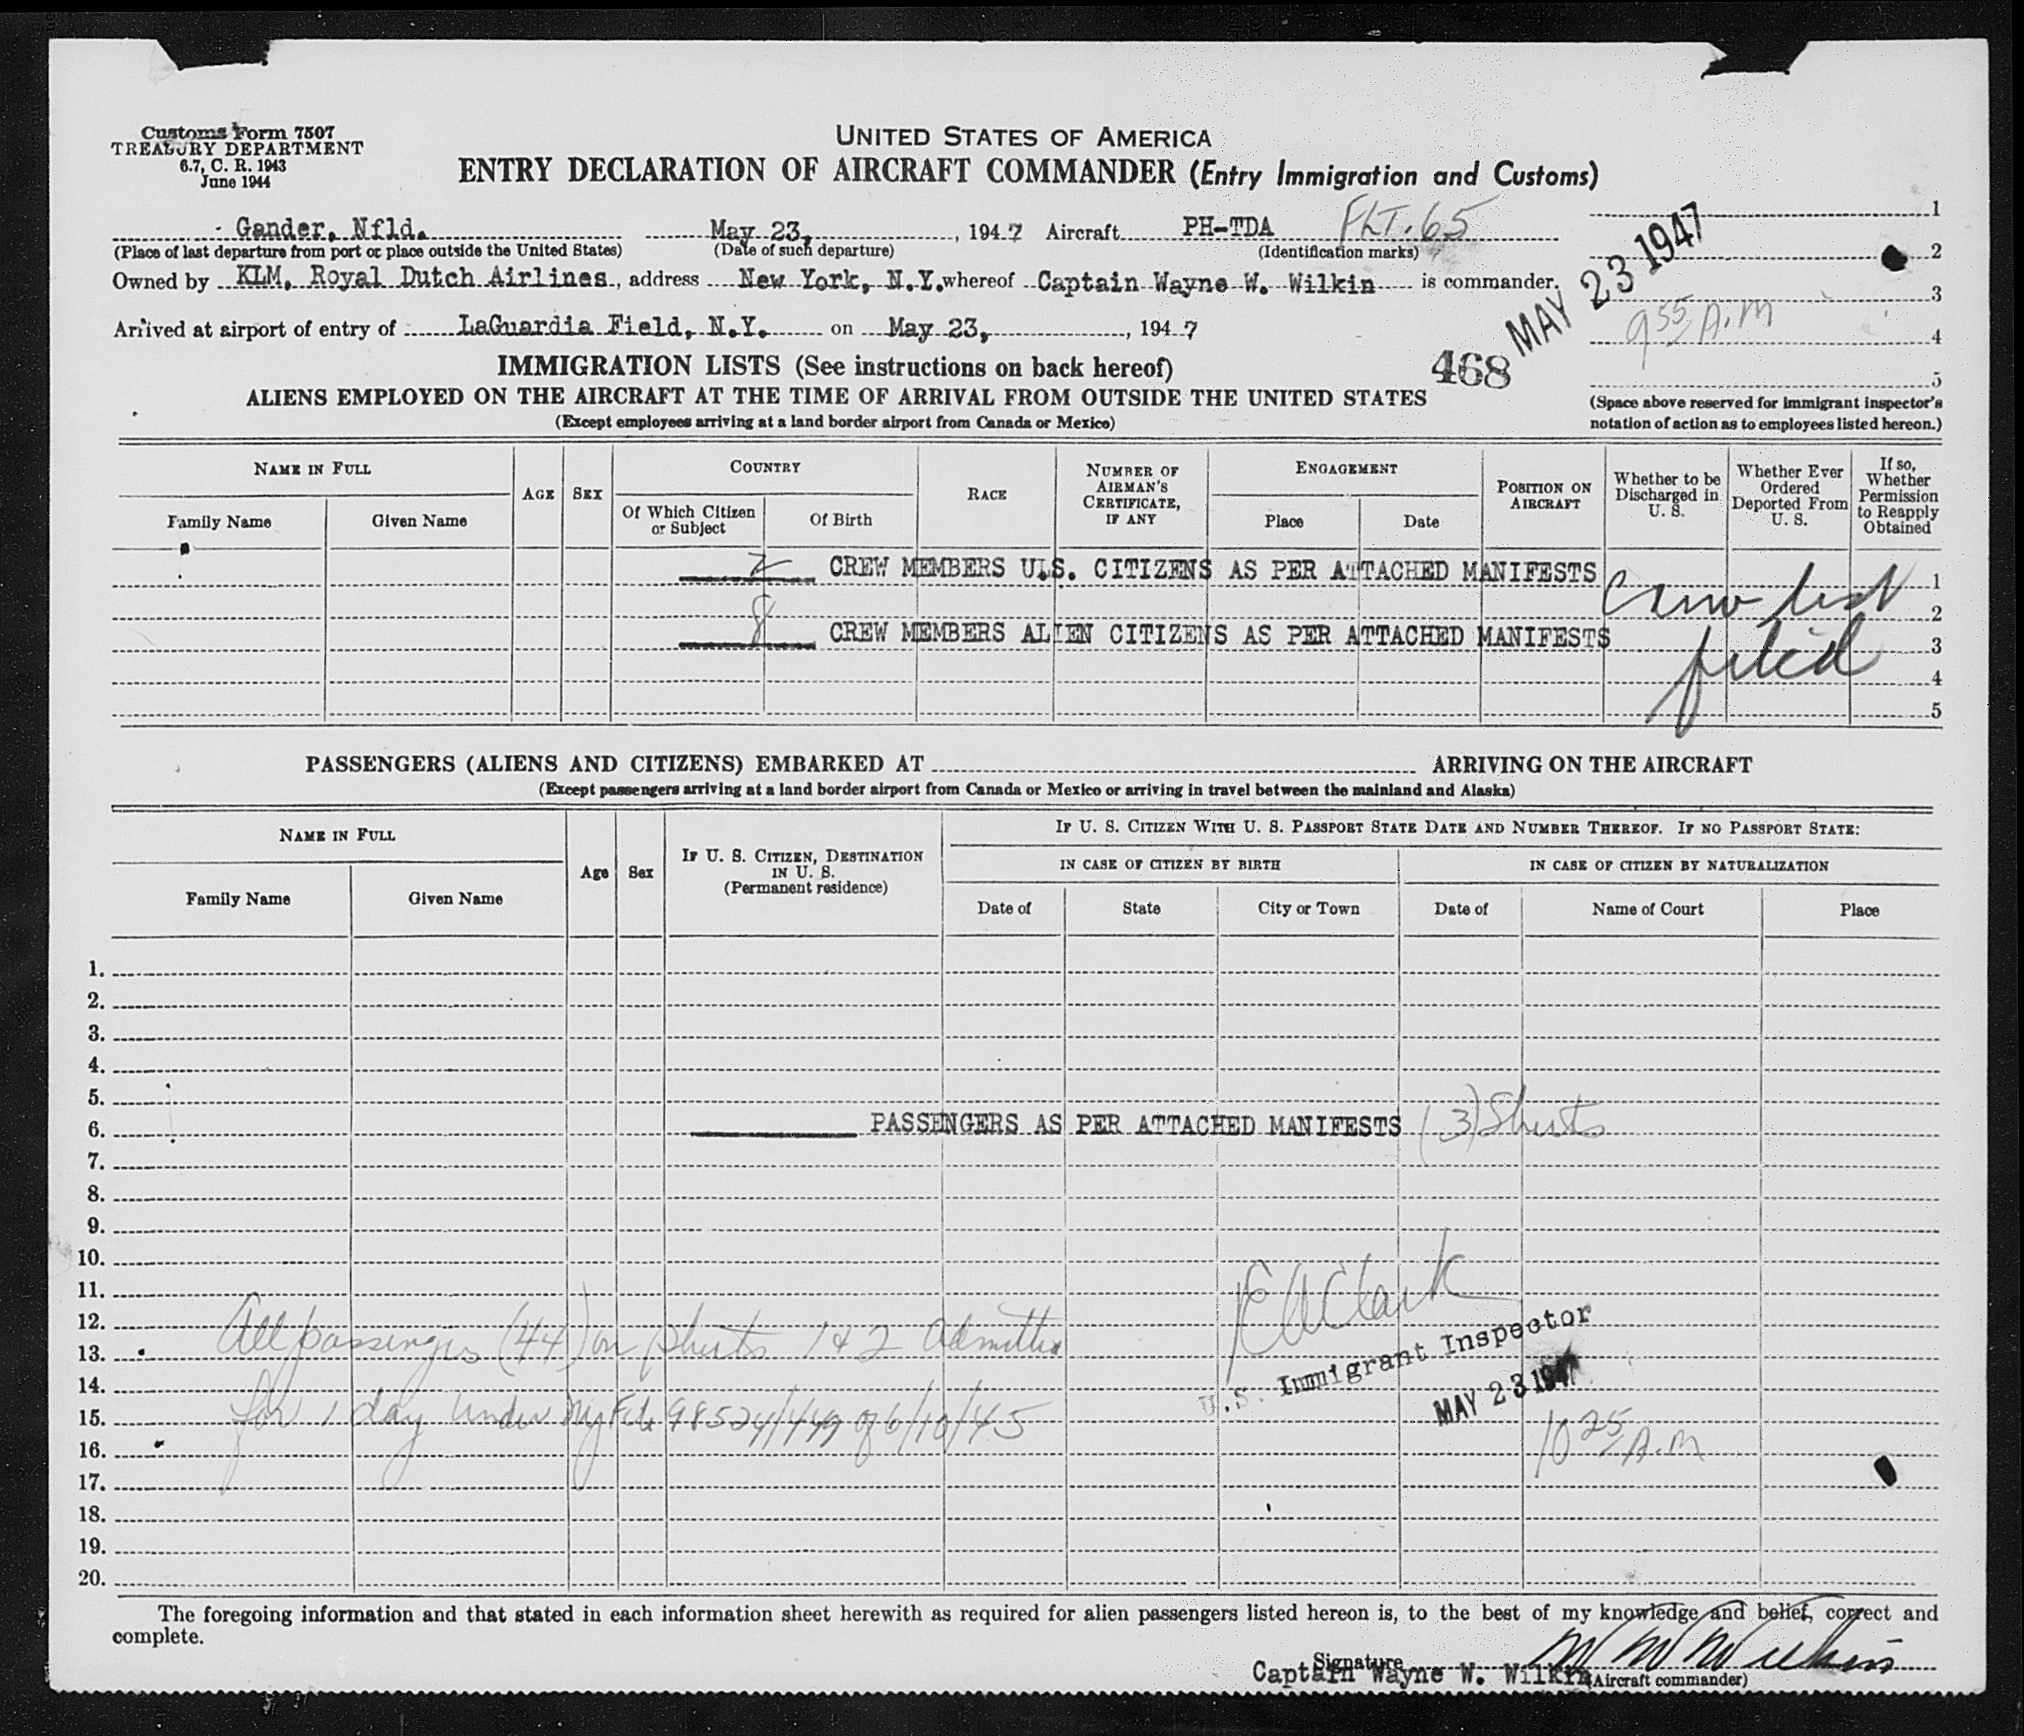 Customs Form 7507
TREASURY DEPARTMENT
6.7, C. R. 1943
June 1944
UNITED STATES OF AMERICA
ENTRY DECLARATION OF AIRCRAFT COMMANDER (Entry Immigration and Customs)
Gander, Nfld. May 23, 1947 Aircraft PH-TDA FLT. 65
(Place of last departure from port or place outside the United States) (Date of such departure) (Identification marks)
Owned by KLM, Royal Dutch Airlines, address New York, N.Y. whereof Captain Wayne W. Wilkin is commander.
Arrived at airport of entry of LaGuardia Field, N.Y. on May 23, 1947
1
2
3
4
5
MAY 23 1947
9 55 A.M
468
(Space above reserved for immigrant inspector's
notation of action as to employees listed hereon.)
IMMIGRATION LISTS (See instructions on back hereof)
ALIENS EMPLOYED ON THE AIRCRAFT AT THE TIME OF ARRIVAL FROM OUTSIDE THE UNITED STATES
(Except employees arriving at a land border airport from Canada or Mexico)
NAME IN FULL
Family Name Given Name
AGE
SEX
COUNTRY
Of Which Citizen or Subject
Of Birth
RACE
NUMBER OF AIRMAN'S CERTIFICATE, IF ANY
ENGAGEMENT
Place Date
POSITION ON AIRCRAFT
Whether to be Discharged in U. S.
Whether Ever Ordered Deported From U. S.
If so, Whether Permission to Reapply Obtained
2 CREW MEMBERS U.S. CITIZENS AS PER ATTACHED MANIFESTS 1
Crew list 2
8 CREW MEMBERS ALIEN CITIZENS AS PER ATTACHED MANIFESTS 3
filed 4
5
PASSENGERS (ALIENS AND CITIZENS) EMBARKED AT ARRIVING ON THE AIRCRAFT
(Except passengers arriving at a land border airport from Canada or Mexico or arriving in travel between the mainland and Alaska)
NAME IN FULL
Family Name Given Name
Age
Sex
IF U. S. CITIZEN, DESTINATION IN U. S.
(Permanent residence)
IF U. S. CITIZEN WITH U. S. PASSPORT STATE DATE AND NUMBER THEREOF. IF NO PASSPORT STATE:
IN CASE OF CITIZEN BY BIRTH IN CASE OF CITIZEN BY NATURALIZATION
Date of State City or Town Date of Name of Court Place
1.
2.
3.
4.
5.
6. PASSENGERS AS PER ATTACHED MANIFESTS (3) Sheets
7.
8.
9.
10.
11.
12. E A Clark
13. All passengers (44) on sheets 1 & 2 admitted
U.S. Immigrant Inspector
14. MAY 23 1947
15. for 1 day under my File 98524/449 of 6/10/45
16. 10 25 A.M
17.
18.
19.
20.
The foregoing information and that stated in each information sheet herewith as required for alien passengers listed hereon is, to the best of my knowledge and belief, correct and
complete.
Signature W W Wilkin
Captain Wayne W. Wilkin (Aircraft commander)